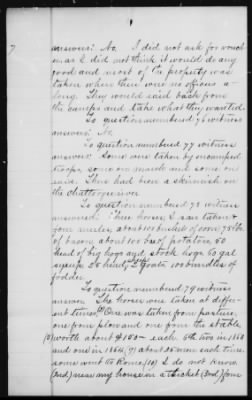 7
answers: No. I did not ask for vouch
er as I did not think it would do any
good and most of the property was
taken when there was no officers a
long. They would raid back from
the camps and take what they wanted.
To question numbered 76 witness
answers: No
To question numbered 77 witness
answers: Some were taken by encamped
troops, some on march and some on
raid. There had been a skirmish on
the chattooga river
To question numbered 78 witness
answered: Three horses, I saw taken &
four mules, about 100 bushels of corn, 75 lbs
of bacon, about 100 bus of potatoes, 50
head of big hogs and stock hogs 50 gal
syrup, 25 head, 2 goats, 100 bundles of
fodder
To question numbered 79 witness
answers: The horses were taken at differ-
ent times. One was taken from pasture
one from plow and one from the stable
worth about $150 each 5th two in 1863
and one in 1864, (7) about 20 men each time.
some went to Rome, (10) I do not know
(2nd) near my house on a thicket (3rd) four